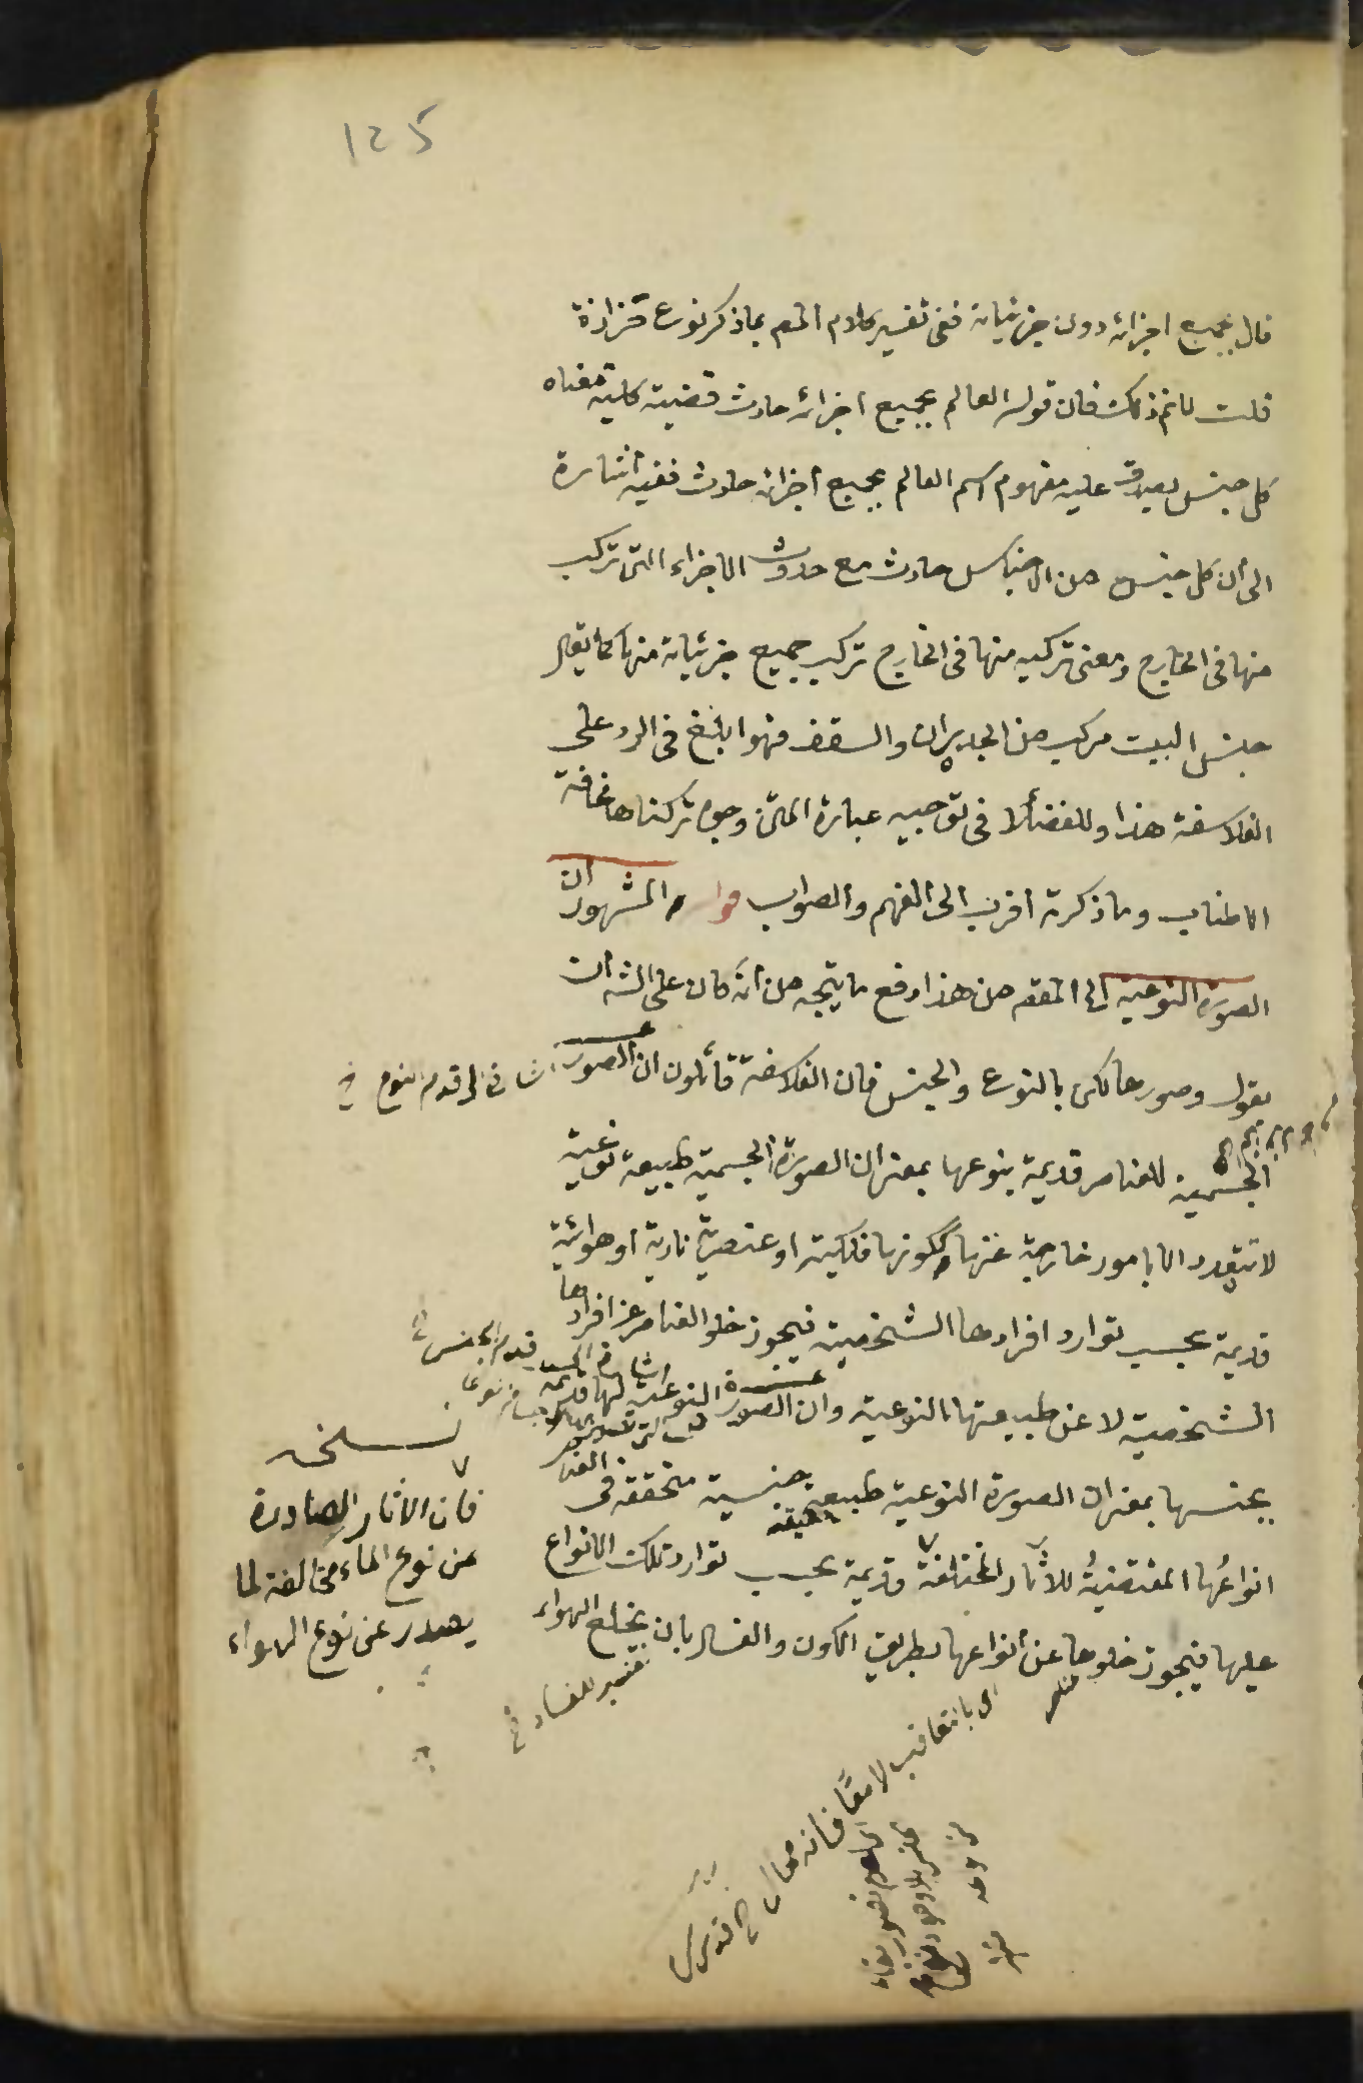 ١٢٥
قال بجميع اجزائه دون جزئياته ففى تفسير كلام المص بما ذكر نوع حزازة
قلت لانم ذلك فان قوله العالم بجميع اجزائه حادث قضية كلية معناه
كل جنس يصدق عليه مفهوم اسم العالم بجميع اجزائه حادث ففيه اشارة
الى أن كل جنس من الاجناس حادث مع حدوث الاجزاء التى تركب
منها فى الخارج ومعنى تركبه منها فى الخارج تركب جميع جزئياته منها كما يقال
جنس البيت مركب من الجدران والسقف فهو ابلغ فى الرد على
الفلاسفة هذا وللفضلا فى توجيه عبارة المتن وجوه تركناها مخافة
الاطناب وما ذكرته اقرب الى الفهم والصواب قوله المشهور ان
الصورة النوعية الخ المقص من هذا دفع ما يتجه من أنه كان على الشه ان
يقول وصورها لكن بالنوع والجنس فان الفلاسفة قائلون ان الصور
اشارة الى قدم النوع
الجسمية للعناصر قديمة بنوعها بمعنى ان الصورة الجسمية طبيعة نوعية
لا تتعدد الا بامور خارجة عنها ككونها فلكية او عنصرية نارية او هوائية
قديمة بحسب توارد افرادها الشخصية فيجوز خلو العناصر عن افرادها
الشخصية لا عن طبيعتها النوعية وان الصورة النوعية لها قديمة
بجنسها بمعنى ان الصورة النوعية طبيعة جنسية متحققة فى
انواعها المقتضية للآثار المختلفة وقديمة بحسب توارد تلك الانواع
عليها فيجوز خلوها عن أنواعها بطريق الكون والفساد بان يخلع الهواء
نسخه
فان الاثار الصادرة
عن نوع الماء مخالفة لما
يصدر عن نوع الهواء
تفسير للفساد
اى بالتعاقب لا معًا فانه محال